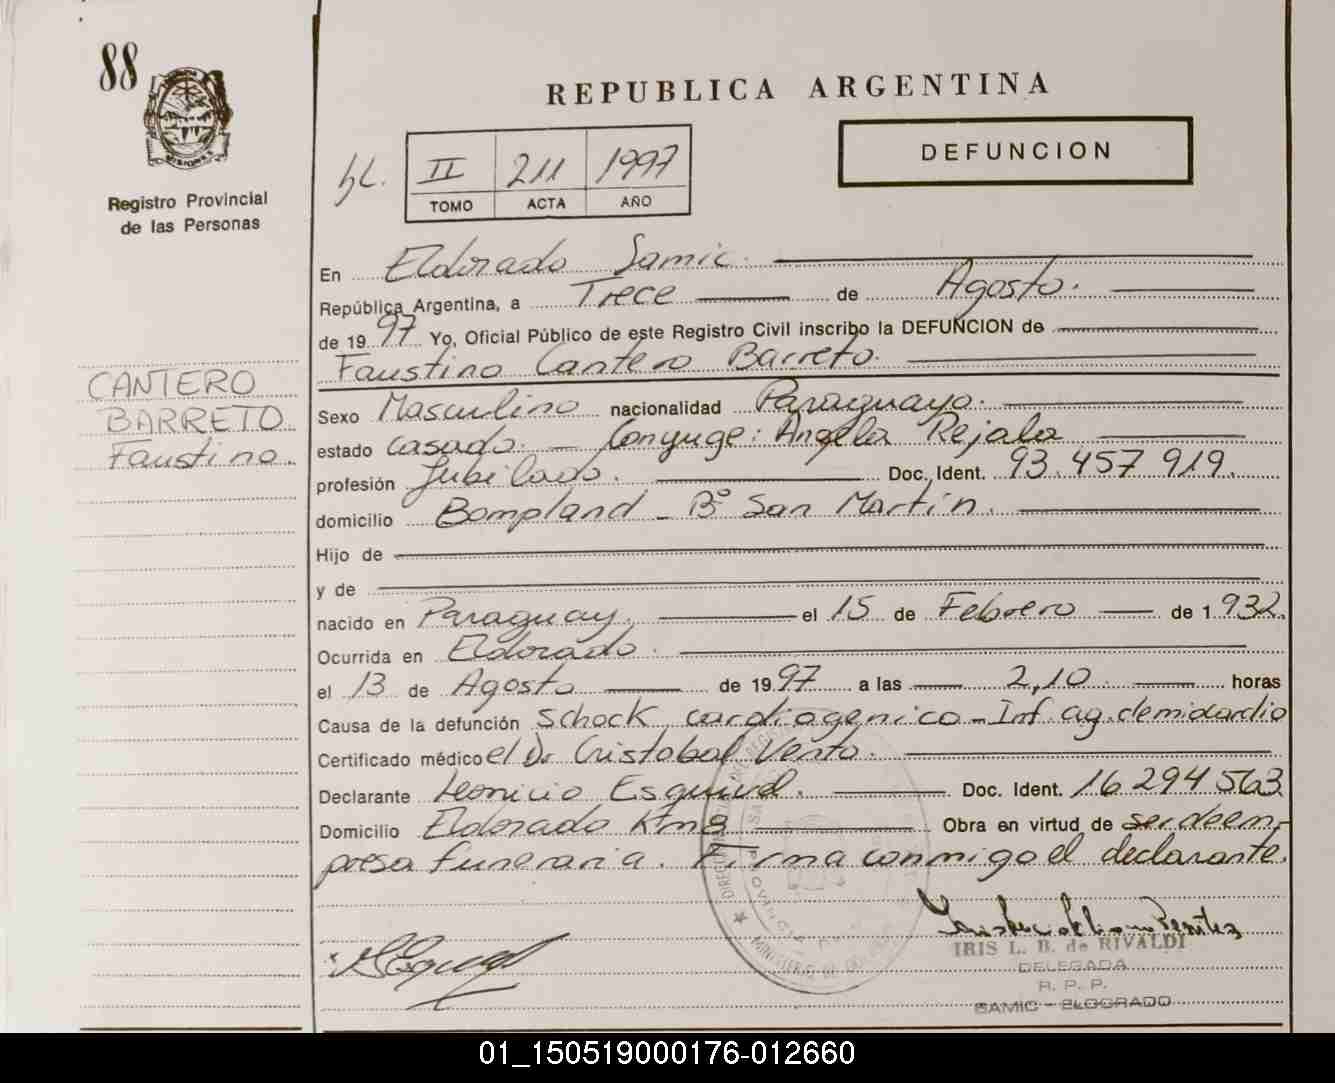 88
MISIONES
Registro Provincial
de las Personas
REPUBLICA ARGENTINA
DEFUNCION
II 211 1997
TOMO ACTA AÑO
CANTERO
BARRETO
Faustino.
En Eldorado Samic.
República Argentina, a Trece de Agosto.
de 1997 Yo, Oficial Público de este Registro Civil inscribo la DEFUNCION de
Faustino Cantero Barreto.
Sexo Masculino nacionalidad Paraguayo.
estado casado. - Conyuge: Angela Rejala
profesión Jubilado. Doc. Ident. 93.457 919.
domicilio Bompland - Bº San Martín.
Hijo de
y de
nacido en Paraguay. el 15 de Febrero de 1.932.
Ocurrida en Eldorado.
el 13 de Agosto de 1997 a las 2,10 horas
Causa de la defunción Schock cardiogenico - Inf ag. de miocardio
Certificado médico el Dr Cristobal Vento.
Declarante Esquivel. Doc. Ident. 16 294 563
Domicilio Eldorado Km 8 Obra en virtud de ser de em-
presa funeraria. Firma conmigo el declarante.
IRIS L. B. de RIVALDI
DELEGADA
R. P. P.
SAMIC - ELDORADO
01_150519000176-012660